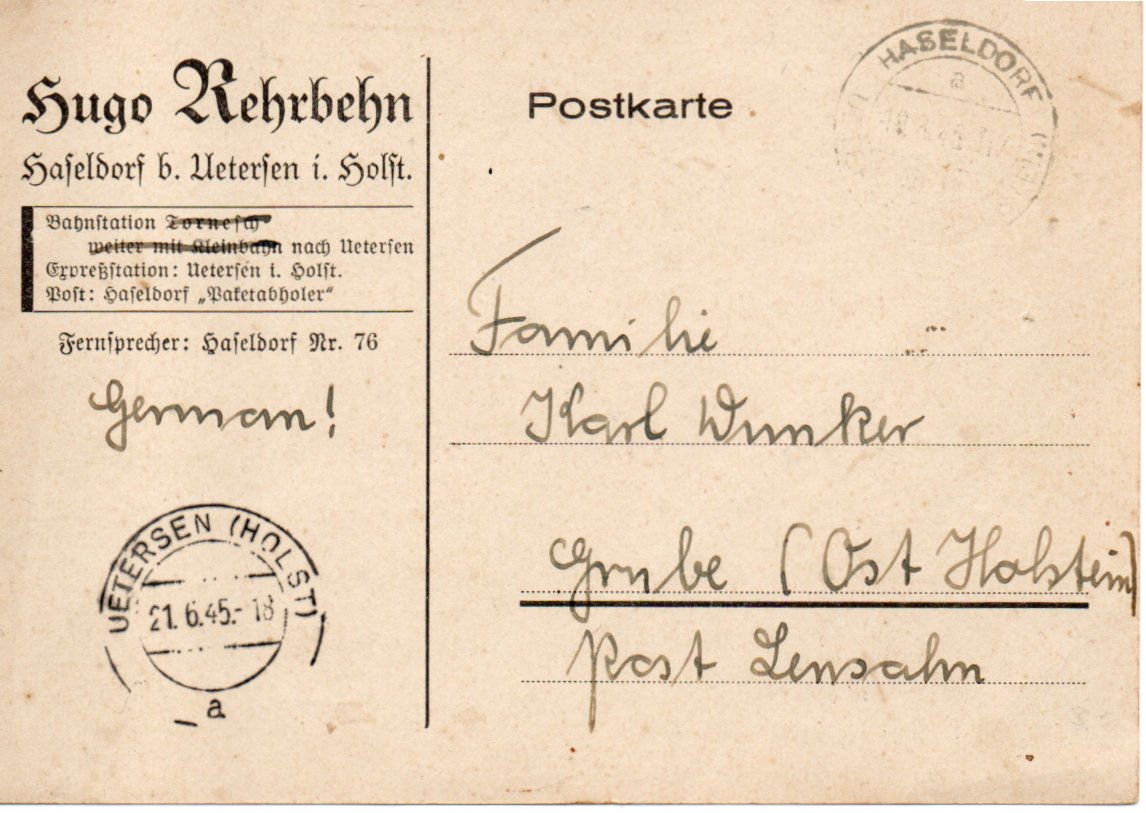 Hugo Rehrbehn
Haseldorf b. Uetersen i. Holst.
Bahnstation Tornesch
weiter mit Kleinbahn nach Uetersen
Expreßstation: Uetersen i. Holst.
Post: Haseldorf „Paketabholer“
Fernsprecher: Haseldorf Nr. 76
German!
UETERSEN (HOLST)
21. 6.45.- 18
a
Postkarte
HASELDORF
a
Familie
Karl Wunker
Grube (Ost Holstein)
Post Lensahn